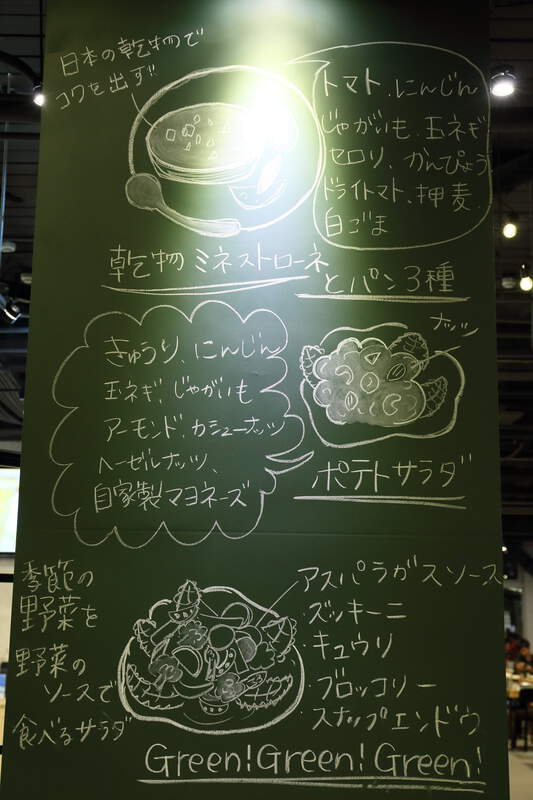 日本の乾物で
コクを出す!!
トマト、にんじん
じゃがいも、玉ネギ
セロリ、かんぴょう
ドライトマト、押麦、
白ごま
乾物ミネストローネ
とパン3種
きゅうり、にんじん
玉ネギ、じゃがいも
アーモンド、カシューナッツ
ヘーゼルナッツ、
自家製マヨネーズ
ナッツ
ポテトサラダ
季節の
野菜を
野菜の
ソースで
食べるサラダ
アスパラガスソース
・ズッキーニ
・キュウリ
・ブロッコリー
・スナップエンドウ
Green!Green!Green!